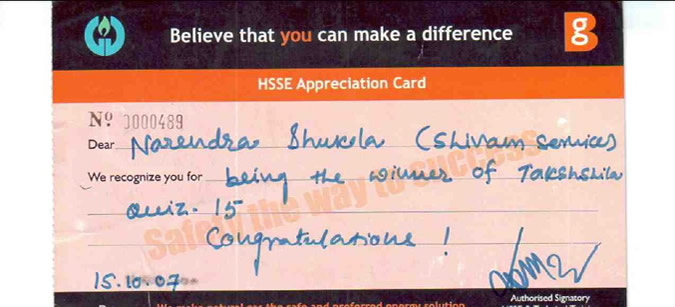 Believe that you can make a difference
g
HSSE Appreciation Card
Nº 0000489
Dear Narendra Shukla (Shivam services)
We recognize you for being the winner of Takshshila
Quiz. 15
Safety the way to success
Congratulations !
15.10.07
Authorised Signatory
We make natural gas the safe and preferred energy solution